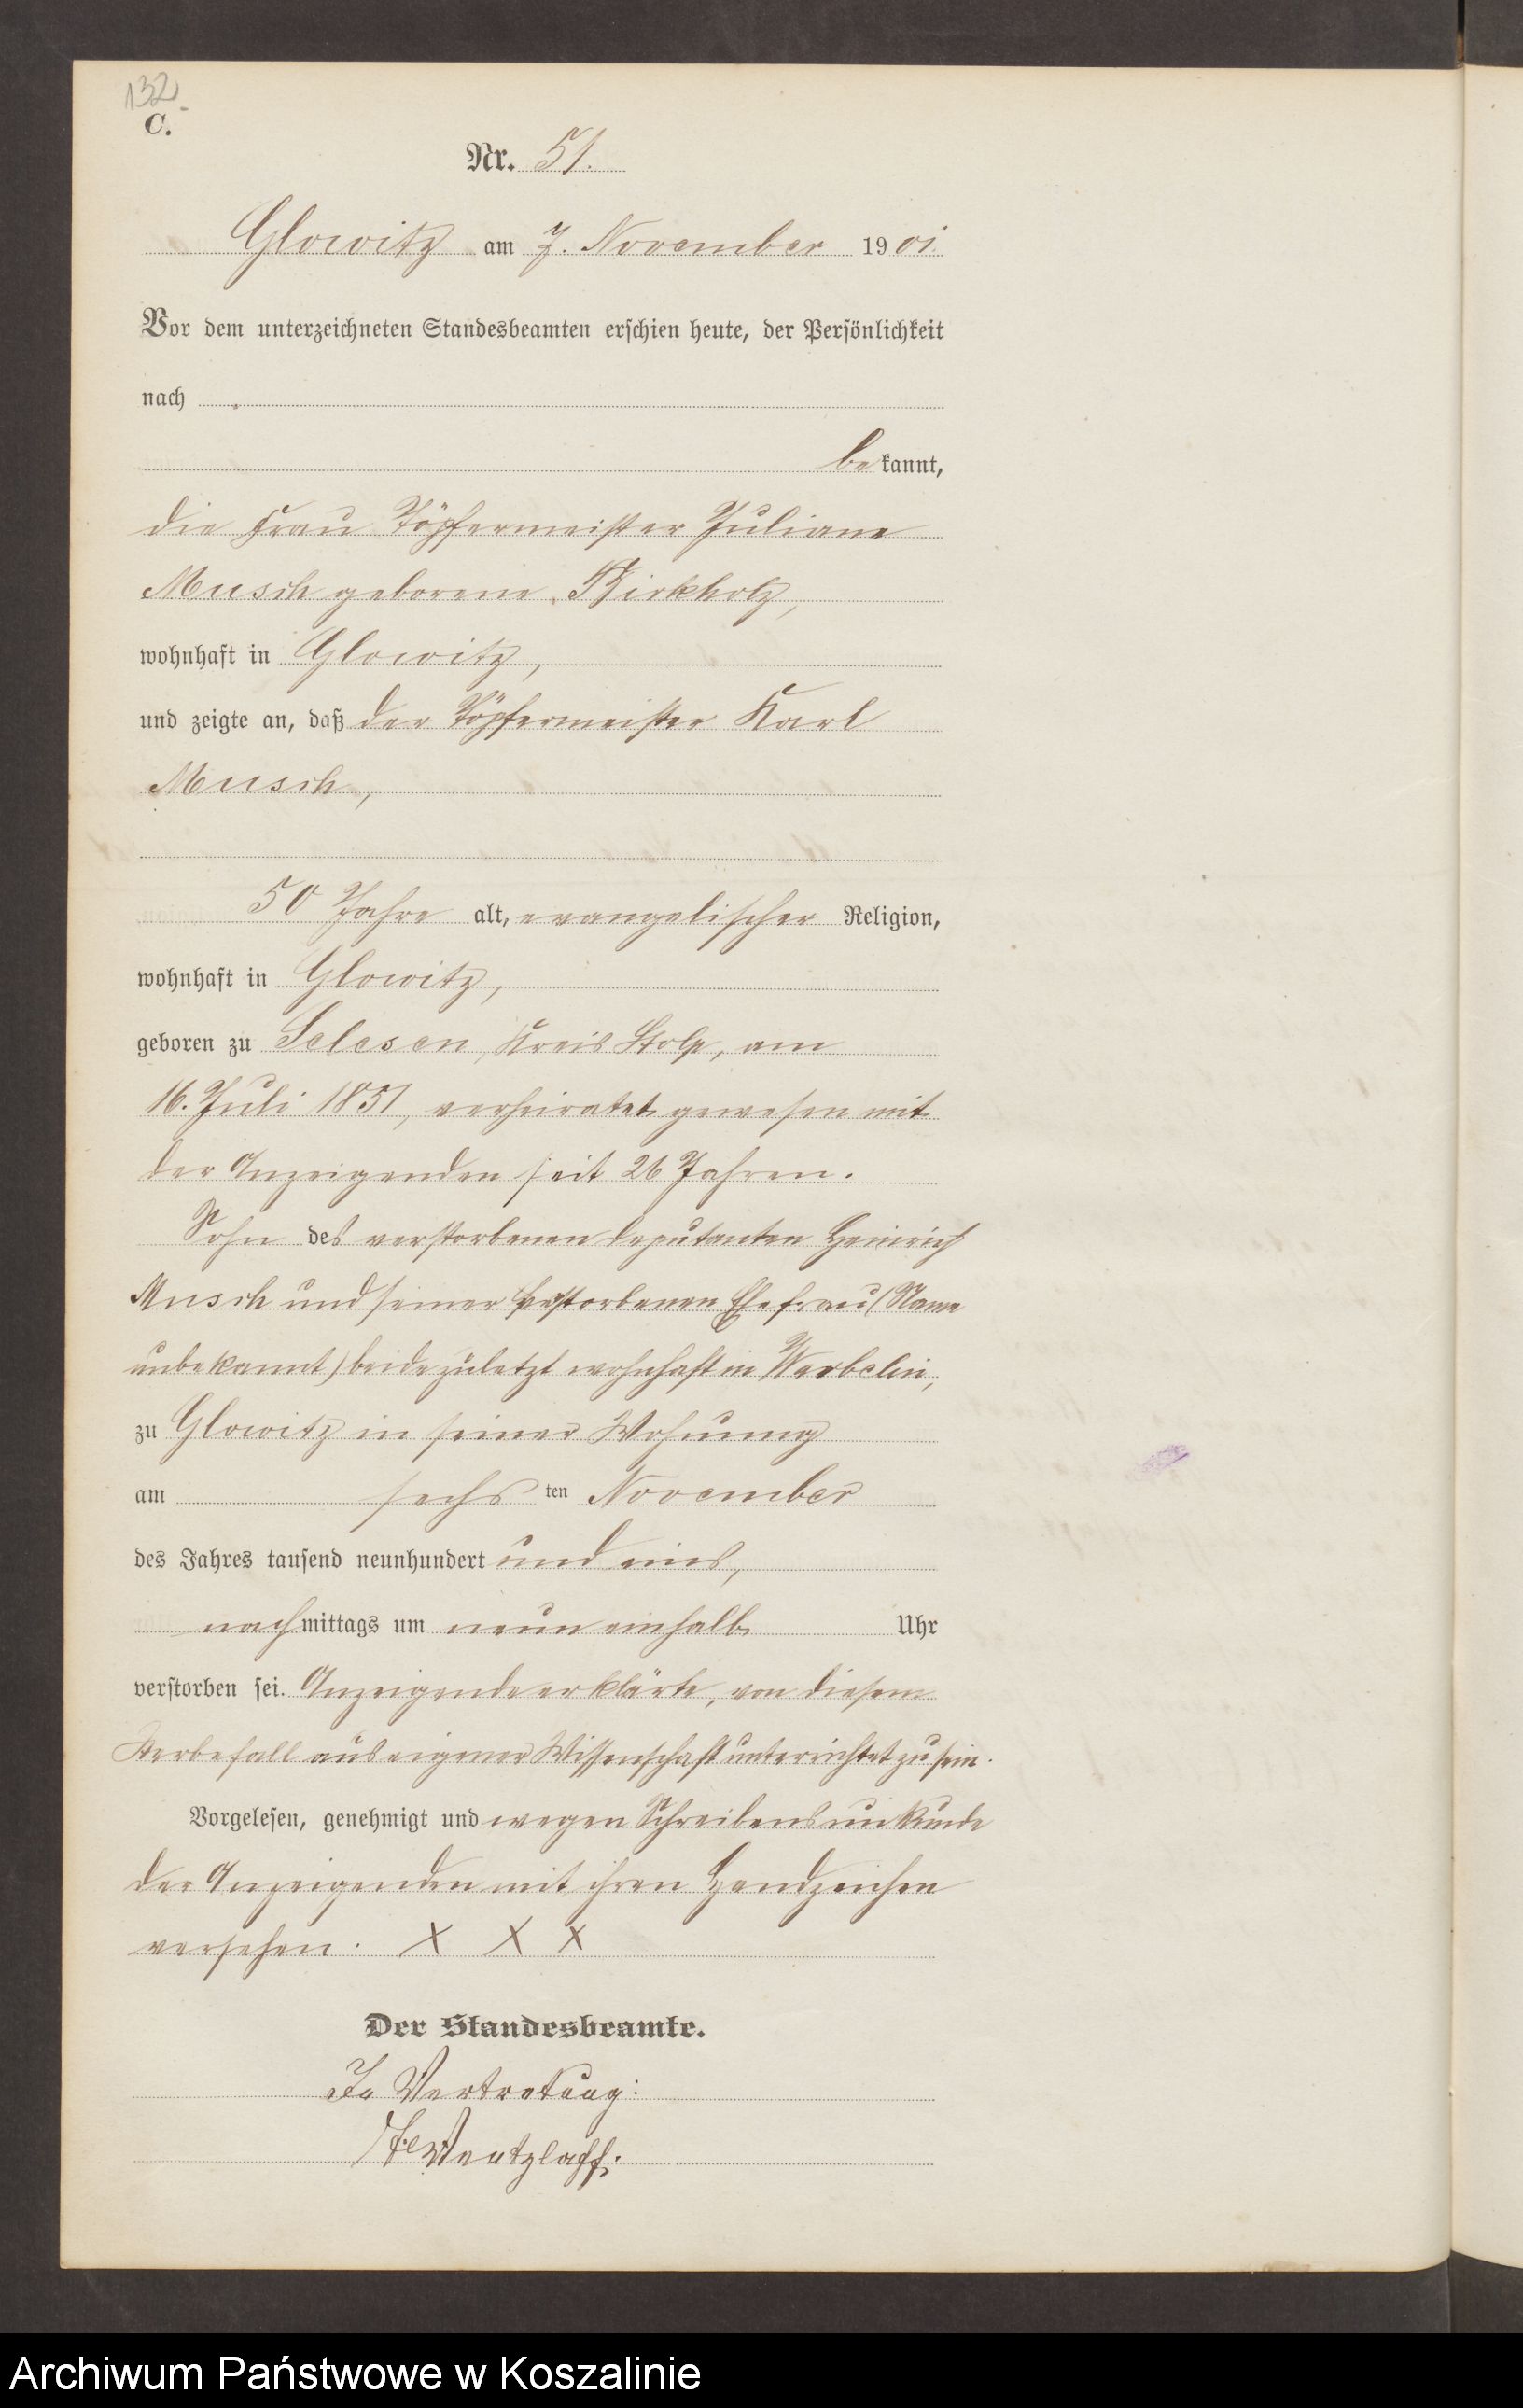 132
C.
Nr. 51.
Glowitz am 7. November 1901
Vor dem unterzeichneten Standesbeamten erschien heute, der Persönlichkeit
nach
bekannt,
die Frau Töpfermeister Juliane
Musch geborene Birkholz,
wohnhaft in Glowitz,
und zeigte an, daß der Töpfermeister Karl
Musch,
50 Jahre alt, evangelischer Religion,
wohnhaft in Glowitz,
geboren zu Selesen, Kreis Stolp, am
16. Juli 1851, verheiratet gewesen mit
der Anzeigenden seit 26 Jahren.
Sohn des verstorbenen Deputanten Heinrich
Musch und seiner verstorbenen Ehefrau (Name
unbekannt) beide zuletzt wohnhaft in Warbelin,
zu Glowitz in seiner Wohnung
am sechsten November
des Jahres tausend neunhundert und eins,
nachmittags um neun einhalb Uhr
verstorben sei. Anzeigende erklärte, von diesem
Sterbefall aus eigener Wissenschaft unterrichtet zu sein.
Vorgelesen, genehmigt und wegen Schreibensunkunde
der Anzeigenden mit ihren Handzeichen
versehen. X X X
Der Standesbeamte.
In Vertretung:
Wentzlaff.
Archiwum Państwowe w Koszalinie